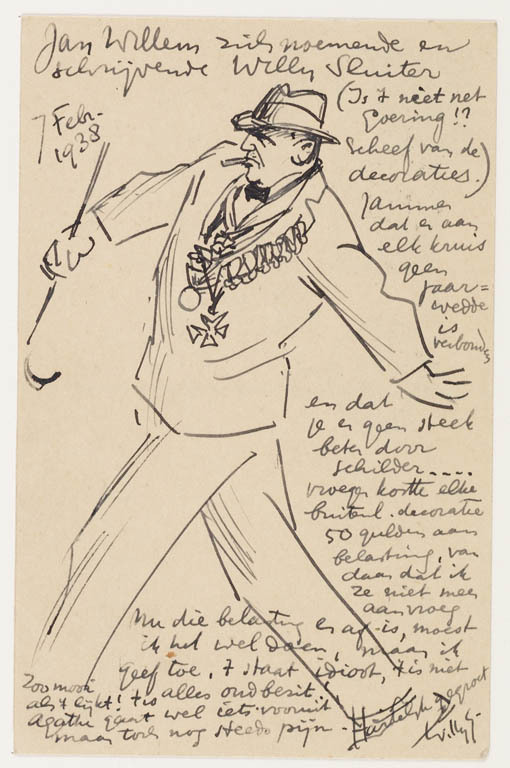 Jan Willem zich noemende en
schrijvende Willy Sluiter
7 Febr-
1938
(Is 't niet net
Goering!!?
Scheef van de
decoraties.)
Jammer
dat er aan
elk kruis
geen
jaar=
wedde
is
verbonden
en dat
je er geen steek
beter door
schilder....
vroeger kostte elke
buitenl. decoratie
50 gulden aan
belasting, van
daar dat ik
ze niet meer
aanvroeg
Nu die belasting er af is, moest
ik het wel doen, maar ik
geef toe, 't staat idioot, 't is niet
zoo mooi
als 't lijkt! 't is alles oud bezit.
Agathe gaat wel iets vooruit
maar toch nog steeds pijn -
Hartelijk gegroet
Willy S.